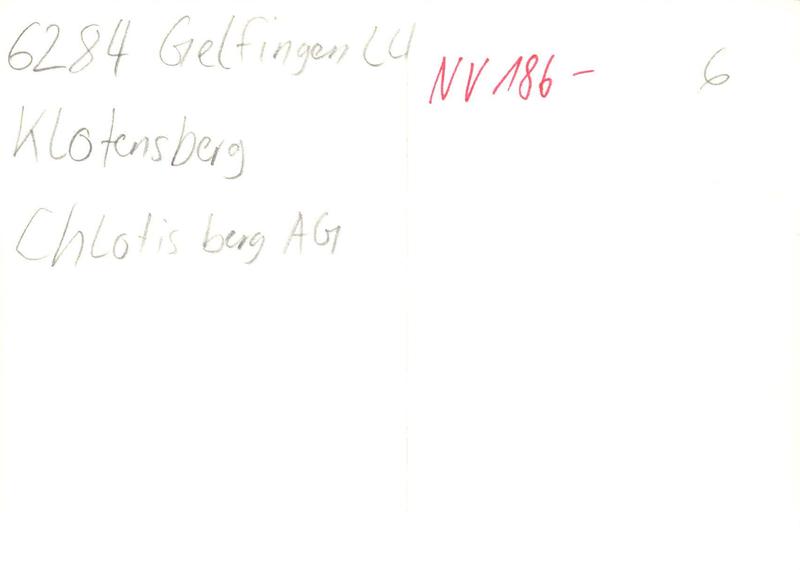 6284 Gelfingen LU
Klotensberg
Chlotisberg AG
NV 186 -
6